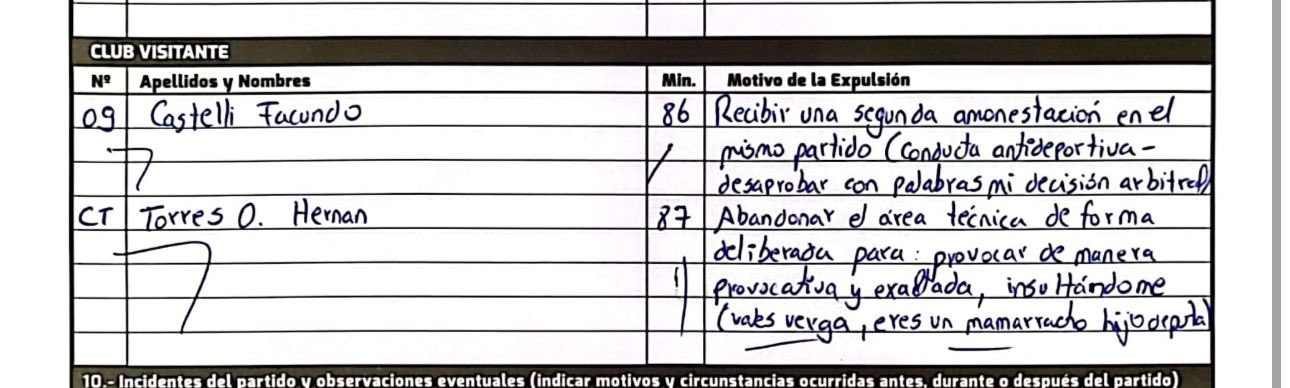 CLUB VISITANTE
Nº Apellidos y Nombres Min. Motivo de la Expulsión
09 Castelli Facundo 86 Recibir una segunda amonestación en el
mismo partido (Conducta antideportiva-
desaprobar con palabras mi decisión arbitral)
CT Torres O. Hernan 87 Abandonar el área técnica de forma
deliberada para: provocar de manera
provocativa y exaltada, insultándome
(vales verga, eres un mamarracho hijo deputa)
10.- Incidentes del partido y observaciones eventuales (indicar motivos y circunstancias ocurridas antes, durante o después del partido)